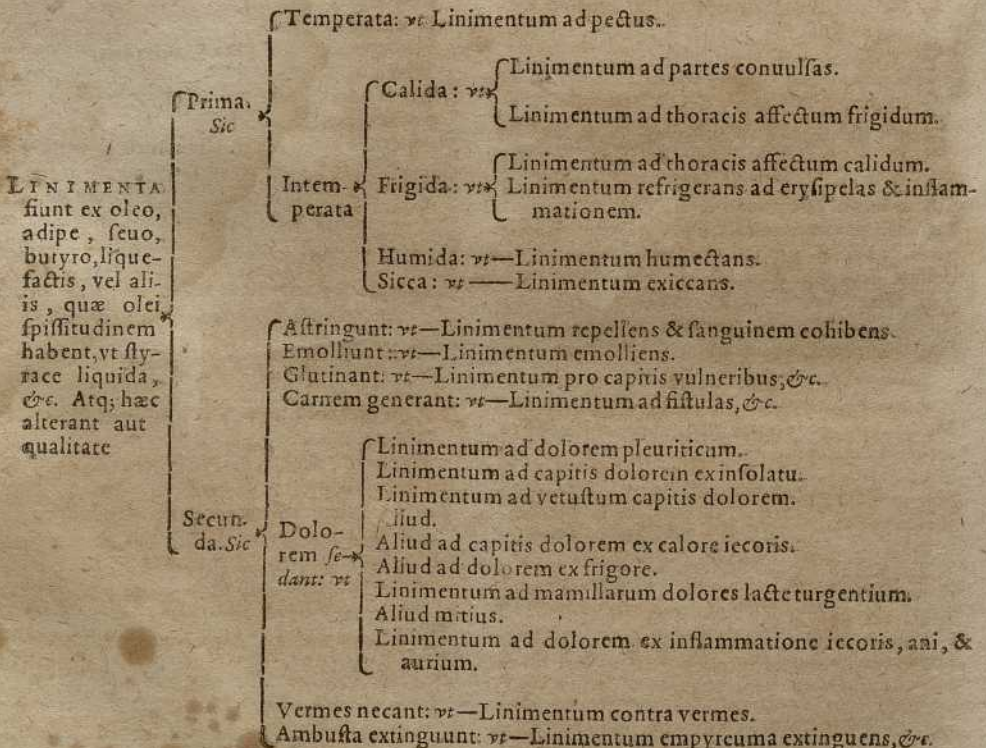 LINIMENTA
fiunt ex oleo,
adipe, ſeuo,
butyro, lique-
factis, vel ali-
is, quæ olei
ſpiſſitudinem
habent, vt ſty-
race liquida,
&c. Atq; hæc
alterant aut
qualitate
Prima.
Sic
Temperata: vt Linimentum ad pectus.
Intem-
perata
Calida: vt
Linimentum ad partes conuulſas.
Linimentum ad thoracis affectum frigidum.
Frigida: vt
Linimentum ad thoracis affectum calidum.
Linimentum refrigerans ad eryſipelas & inflam-
mationem.
Humida: vt—Linimentum humectans.
Sicca: vt—Linimentum exiccans.
Secun-
da. Sic
Aſtringunt: vt—Linimentum repellens & ſanguinem cohibens.
Emolliunt: vt—Linimentum emolliens.
Glutinant: vt—Linimentum pro capitis vulneribus, &c.
Carnem generant: vt—Linimentum ad fiſtulas, &c.
Dolo-
rem ſe-
dant: vt
Linimentum ad dolorem pleuriticum.
Linimentum ad capitis dolorem ex inſolatu.
Linimentum ad vetuſtum capitis dolorem.
Aliud.
Aliud ad capitis dolorem ex calore iecoris.
Aliud ad dolorem ex frigore.
Linimentum ad mamillarum dolores lacte turgentium.
Aliud mitius.
Linimentum ad dolorem ex inflammatione iecoris, ani, &
aurium.
Vermes necant: vt—Linimentum contra vermes.
Ambuſta extinguunt: vt—Linimentum empyreuma extinguens, &c.